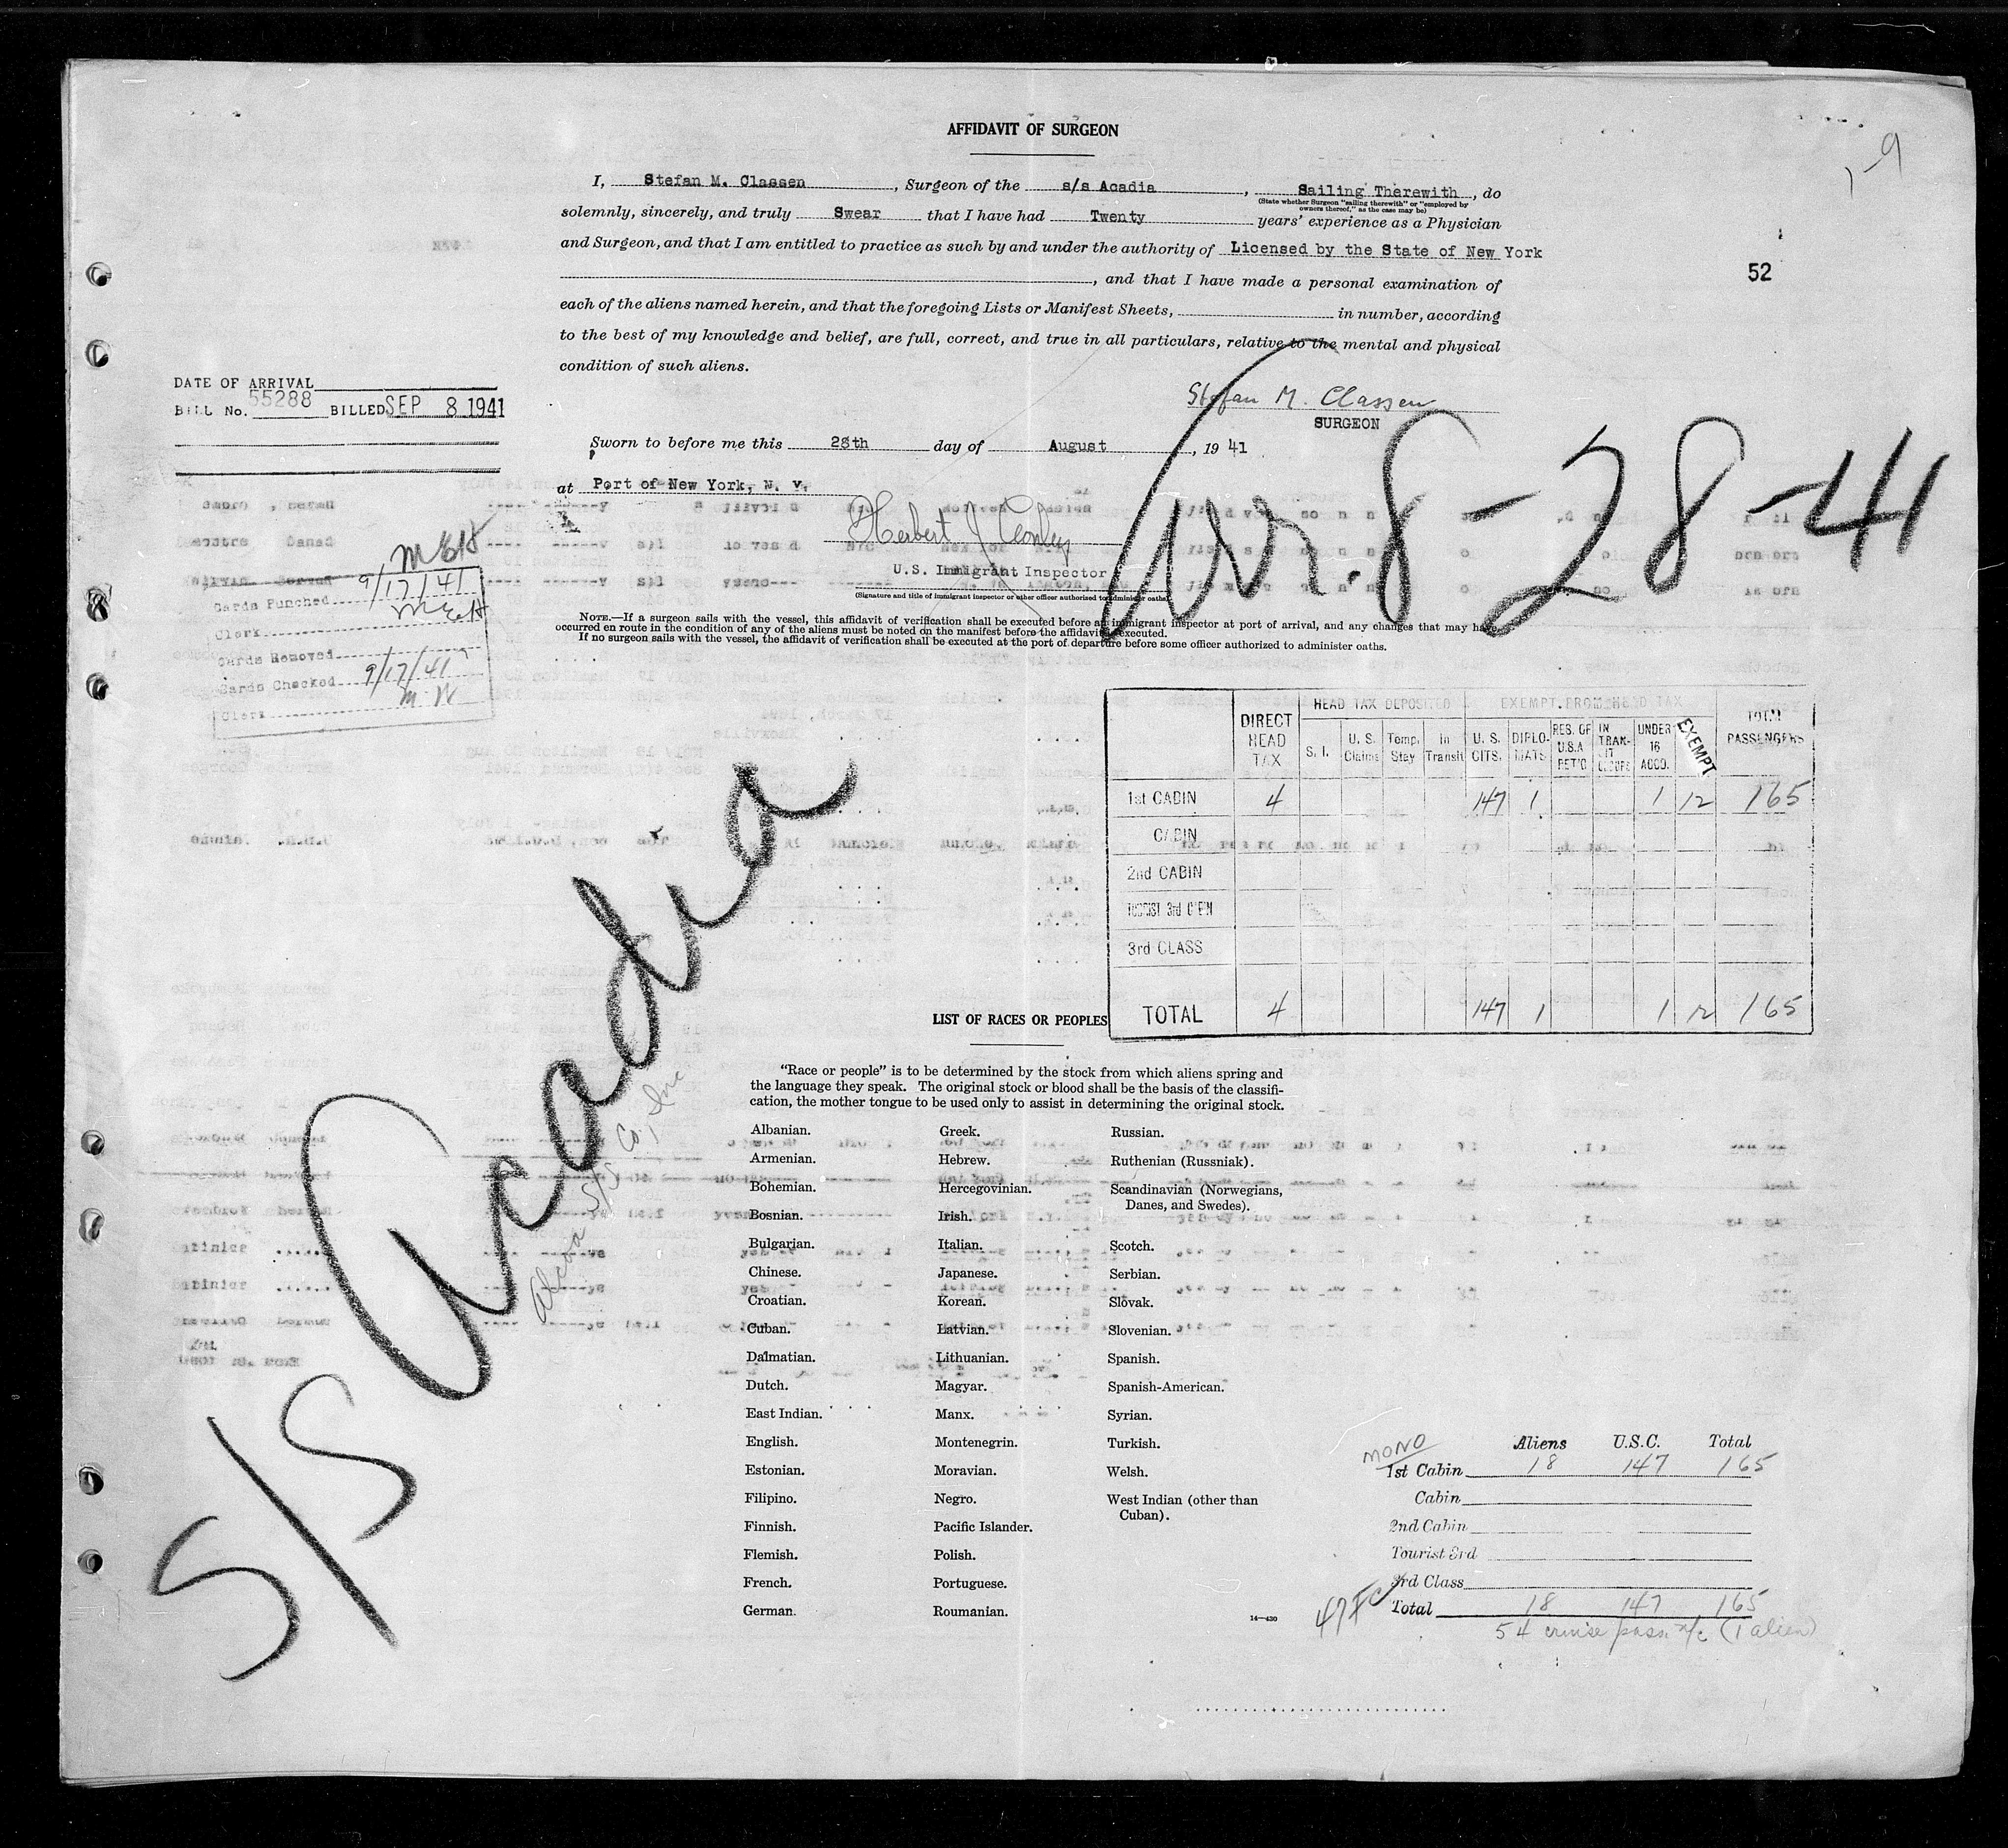 AFFIDAVIT OF SURGEON
1-9
I, Stefan M. Classen, Surgeon of the s/s Acadia, Sailing Therewith, do
(State whether Surgeon "sailing therewith" or "employed by owners thereof," as the case may be)
solemnly, sincerely, and truly Swear that I have had Twenty years' experience as a Physician
and Surgeon, and that I am entitled to practice as such by and under the authority of Licensed by the State of New York
, and that I have made a personal examination of
52
each of the aliens named herein, and that the foregoing Lists or Manifest Sheets, in number, according
to the best of my knowledge and belief, are full, correct, and true in all particulars, relative to the mental and physical
condition of such aliens.
DATE OF ARRIVAL
BILL No. 55288 BILLED SEP 8 1941
Stefan M. Classen
SURGEON
Sworn to before me this 28th day of August, 1941
at Port of New York, N. Y.
Arr. 8-28-41
Herbert J Conley
U.S. Immigrant Inspector
(Signature and title of immigrant inspector or other officer authorized to administer oaths)
MEH
Cards Punched 9/17/41
Clerk MEH
Cards Removed
Cards Checked 9/17/41
Clerk M W
NOTE.—If a surgeon sails with the vessel, this affidavit of verification shall be executed before an immigrant inspector at port of arrival, and any changes that may have
occurred en route in the condition of any of the aliens must be noted on the manifest before the affidavit is executed.
If no surgeon sails with the vessel, the affidavit of verification shall be executed at the port of departure before some officer authorized to administer oaths.
DIRECT HEAD TAX
HEAD TAX DEPOSITED
S. I. U. S. Claims Temp. Stay In Transit
EXEMPT FROM HEAD TAX
U. S. CITS. DIPLO-MATS RES. OF U.S.A RET'D IN TRAN-SIT UNDER 16 ACCO. EXEMPT
TOTAL PASSENGERS
1st CABIN 4 147 1 1 12 165
CABIN
2nd CABIN
TOURIST 3rd CBIN
3rd CLASS
TOTAL 4 147 1 1 12 165
S/S Acadia
Alcoa S/S Co., Inc
LIST OF RACES OR PEOPLES
"Race or people" is to be determined by the stock from which aliens spring and
the language they speak. The original stock or blood shall be the basis of the classifi-
cation, the mother tongue to be used only to assist in determining the original stock.
Albanian.
Armenian.
Bohemian.
Bosnian.
Bulgarian.
Chinese.
Croatian.
Cuban.
Dalmatian.
Dutch.
East Indian.
English.
Estonian.
Filipino.
Finnish.
Flemish.
French.
German.
Greek.
Hebrew.
Hercegovinian.
Irish.
Italian.
Japanese.
Korean.
Latvian.
Lithuanian.
Magyar.
Manx.
Montenegrin.
Moravian.
Negro.
Pacific Islander.
Polish.
Portuguese.
Roumanian.
Russian.
Ruthenian (Russniak).
Scandinavian (Norwegians,
Danes, and Swedes).
Scotch.
Serbian.
Slovak.
Slovenian.
Spanish.
Spanish-American.
Syrian.
Turkish.
Welsh.
West Indian (other than
Cuban).
14—430
MONO
Aliens U.S.C. Total
1st Cabin 18 147 165
Cabin
2nd Cabin
Tourist 3rd
3rd Class
Total 18 147 165
54 cruise pass. (1 alien)